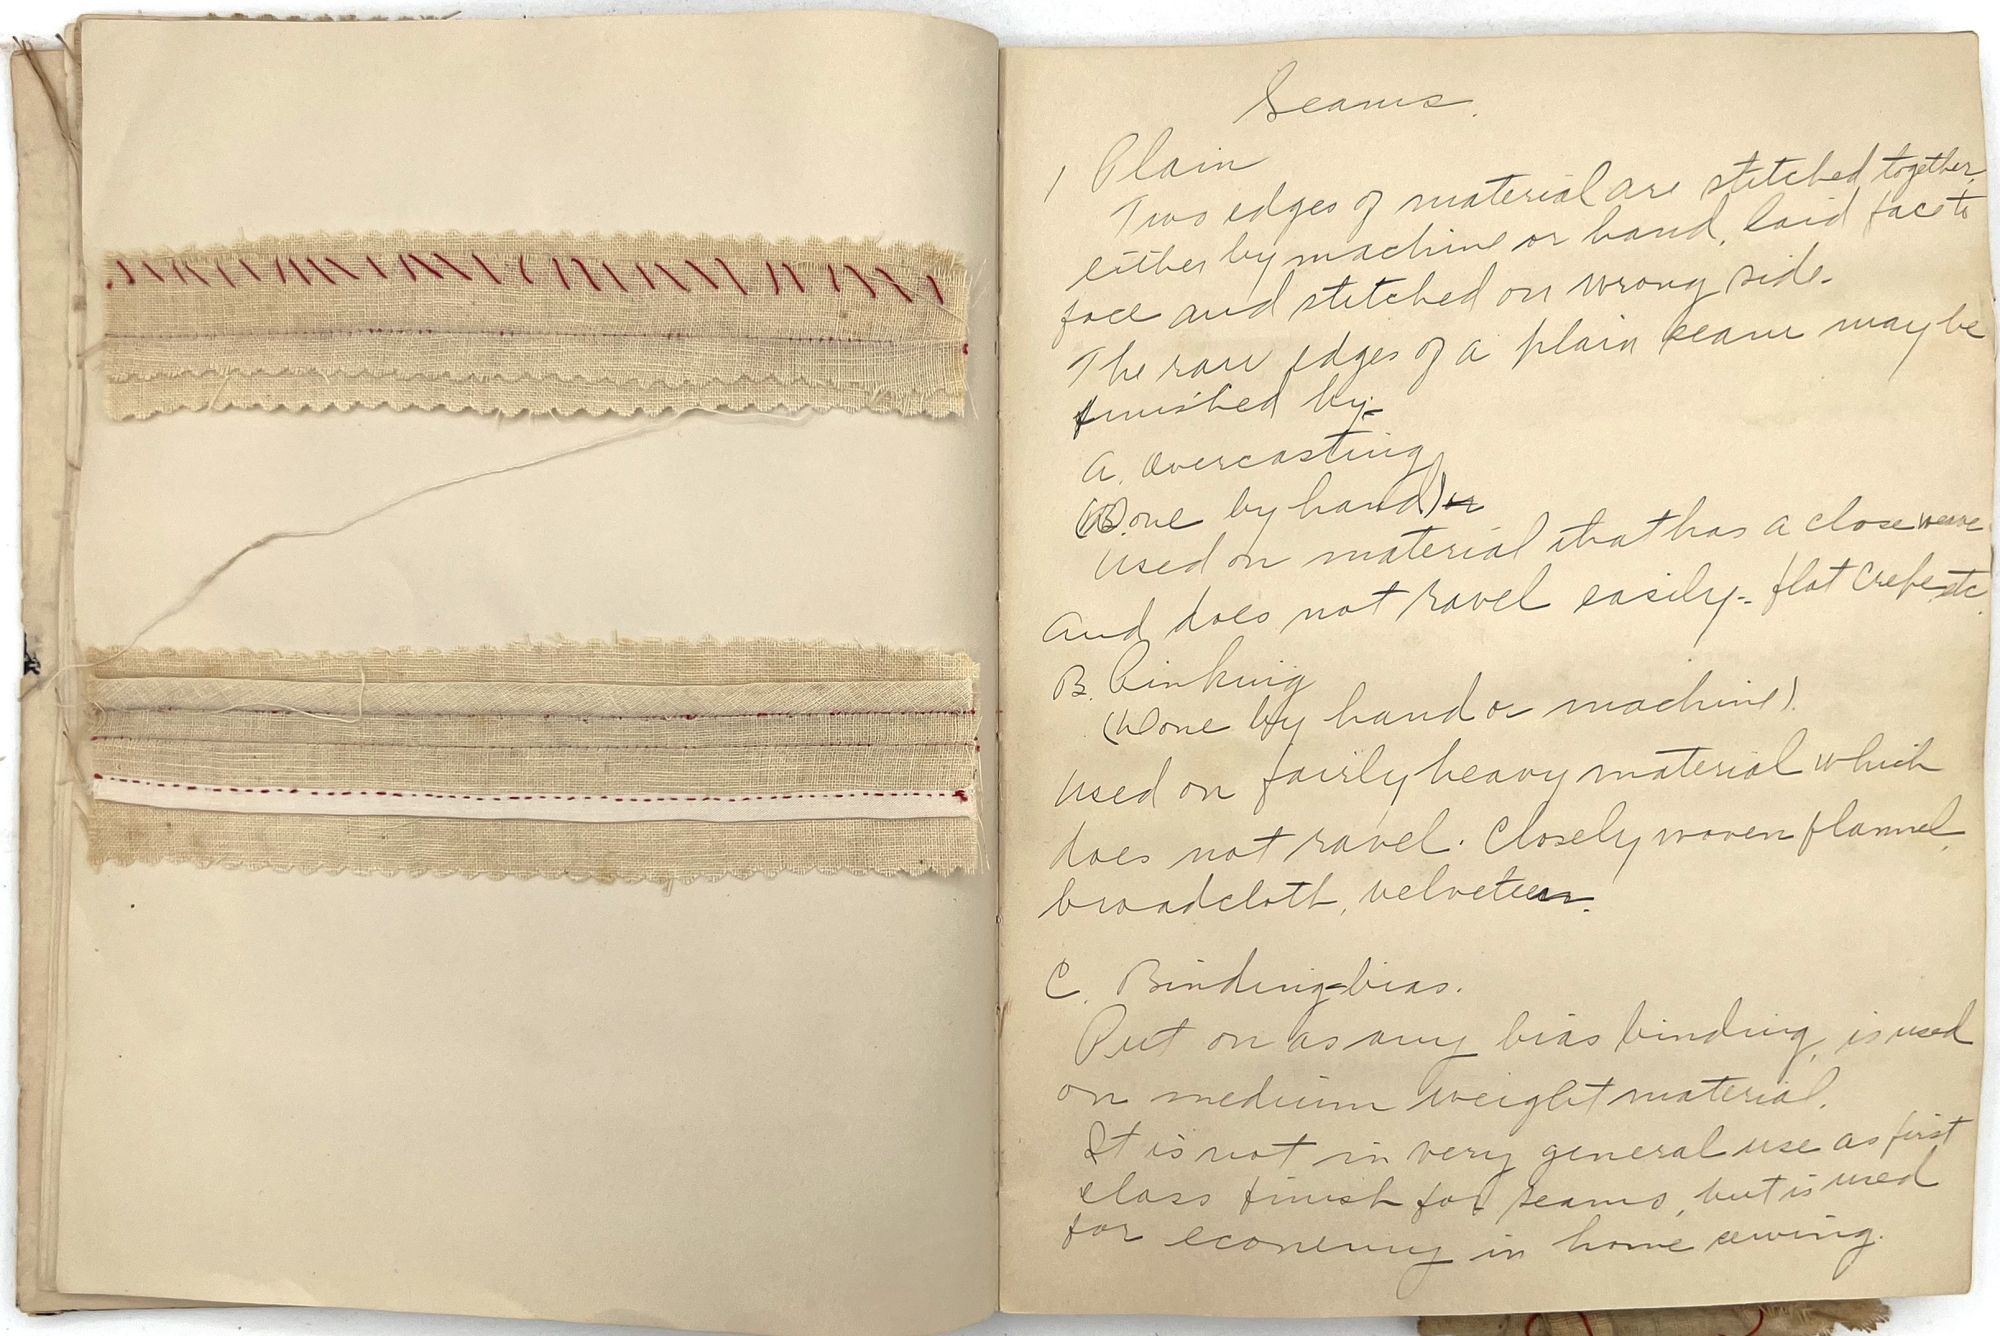 Seams.
1 Plain
Two edges of material are stitched together,
either by machine or hand, laid face to
face and stitched on wrong side.
The raw edges of a plain seam may be
finished by-
A. Overcasting
(Done by hand)
Used on material that has a close weave
and does not ravel easily- flat Crepe etc.
B. Pinking
(Done by hand or machine).
Used on fairly heavy material which
does not ravel. Closely woven flannel,
broadcloth, velveteen.
C. Binding-bias.
Put on as any bias binding, is used
on medium weight material.
It is not in very general use as first
class finish for seams, but is used
for economy in home sewing.